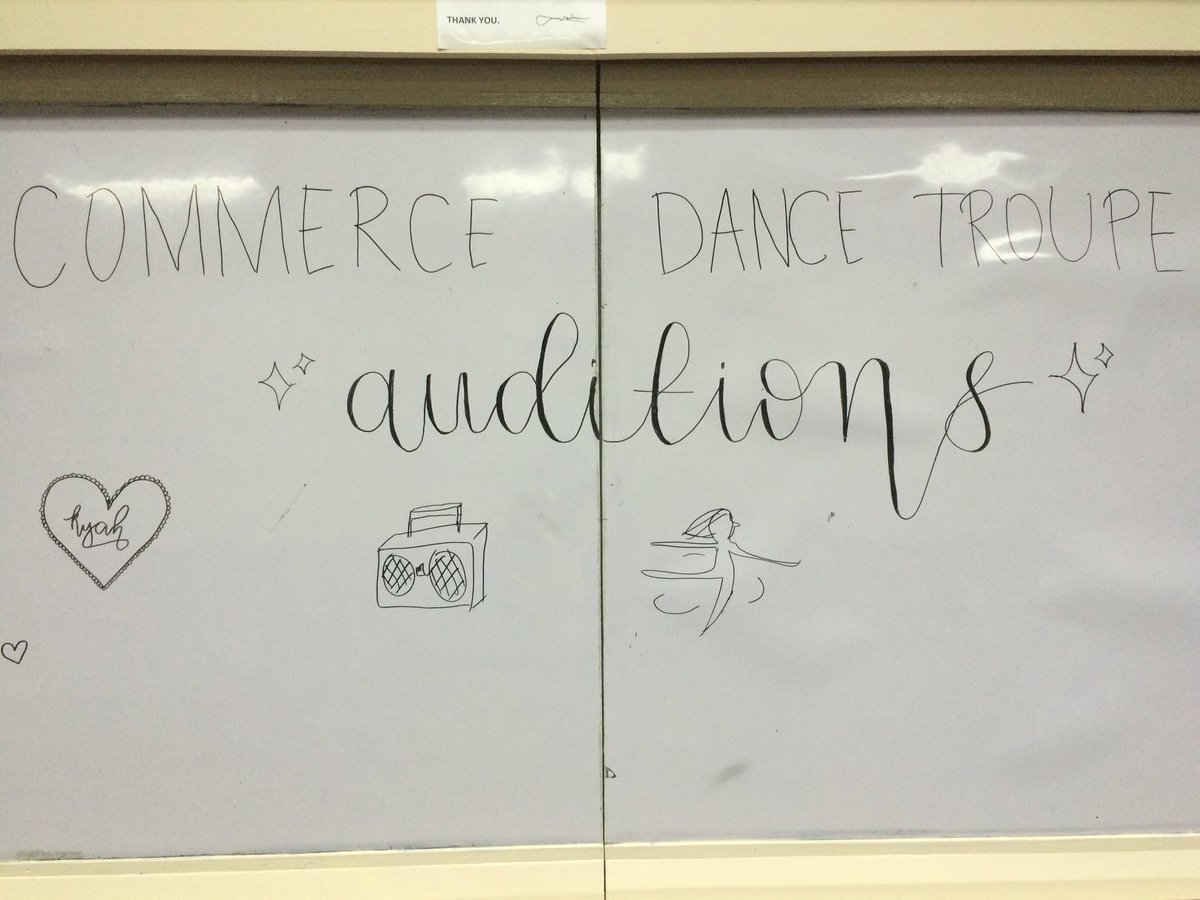 THANK YOU.
COMMERCE DANCE TROUPE
auditions
Kyah